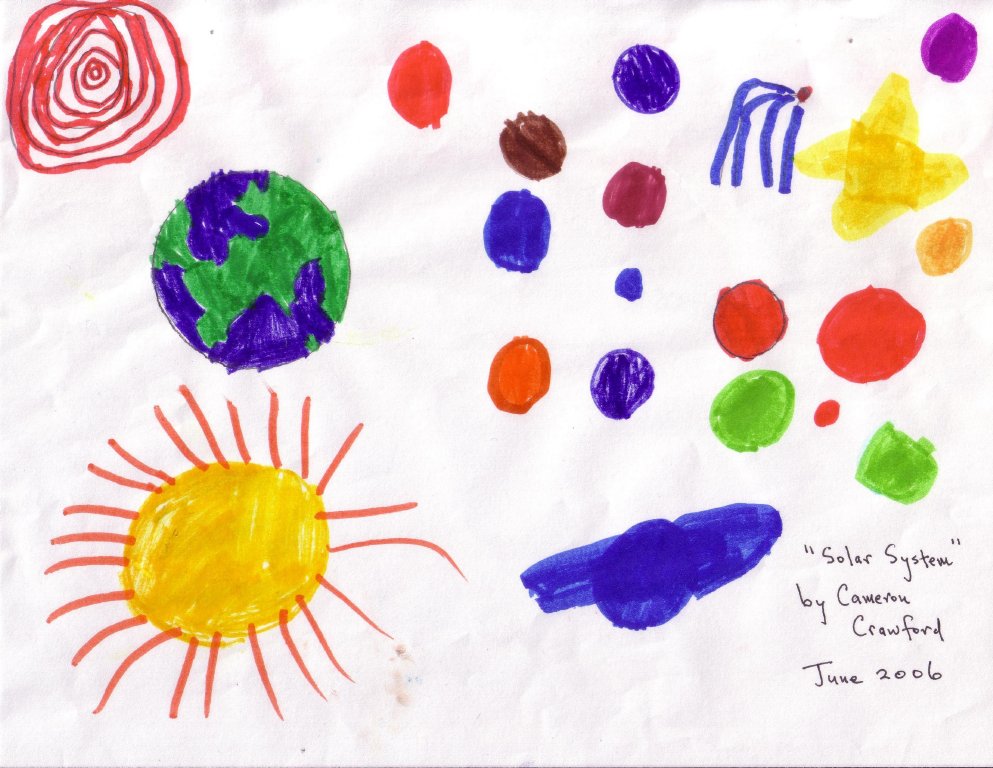 "Solar System"
by Cameron
Crawford
June 2006